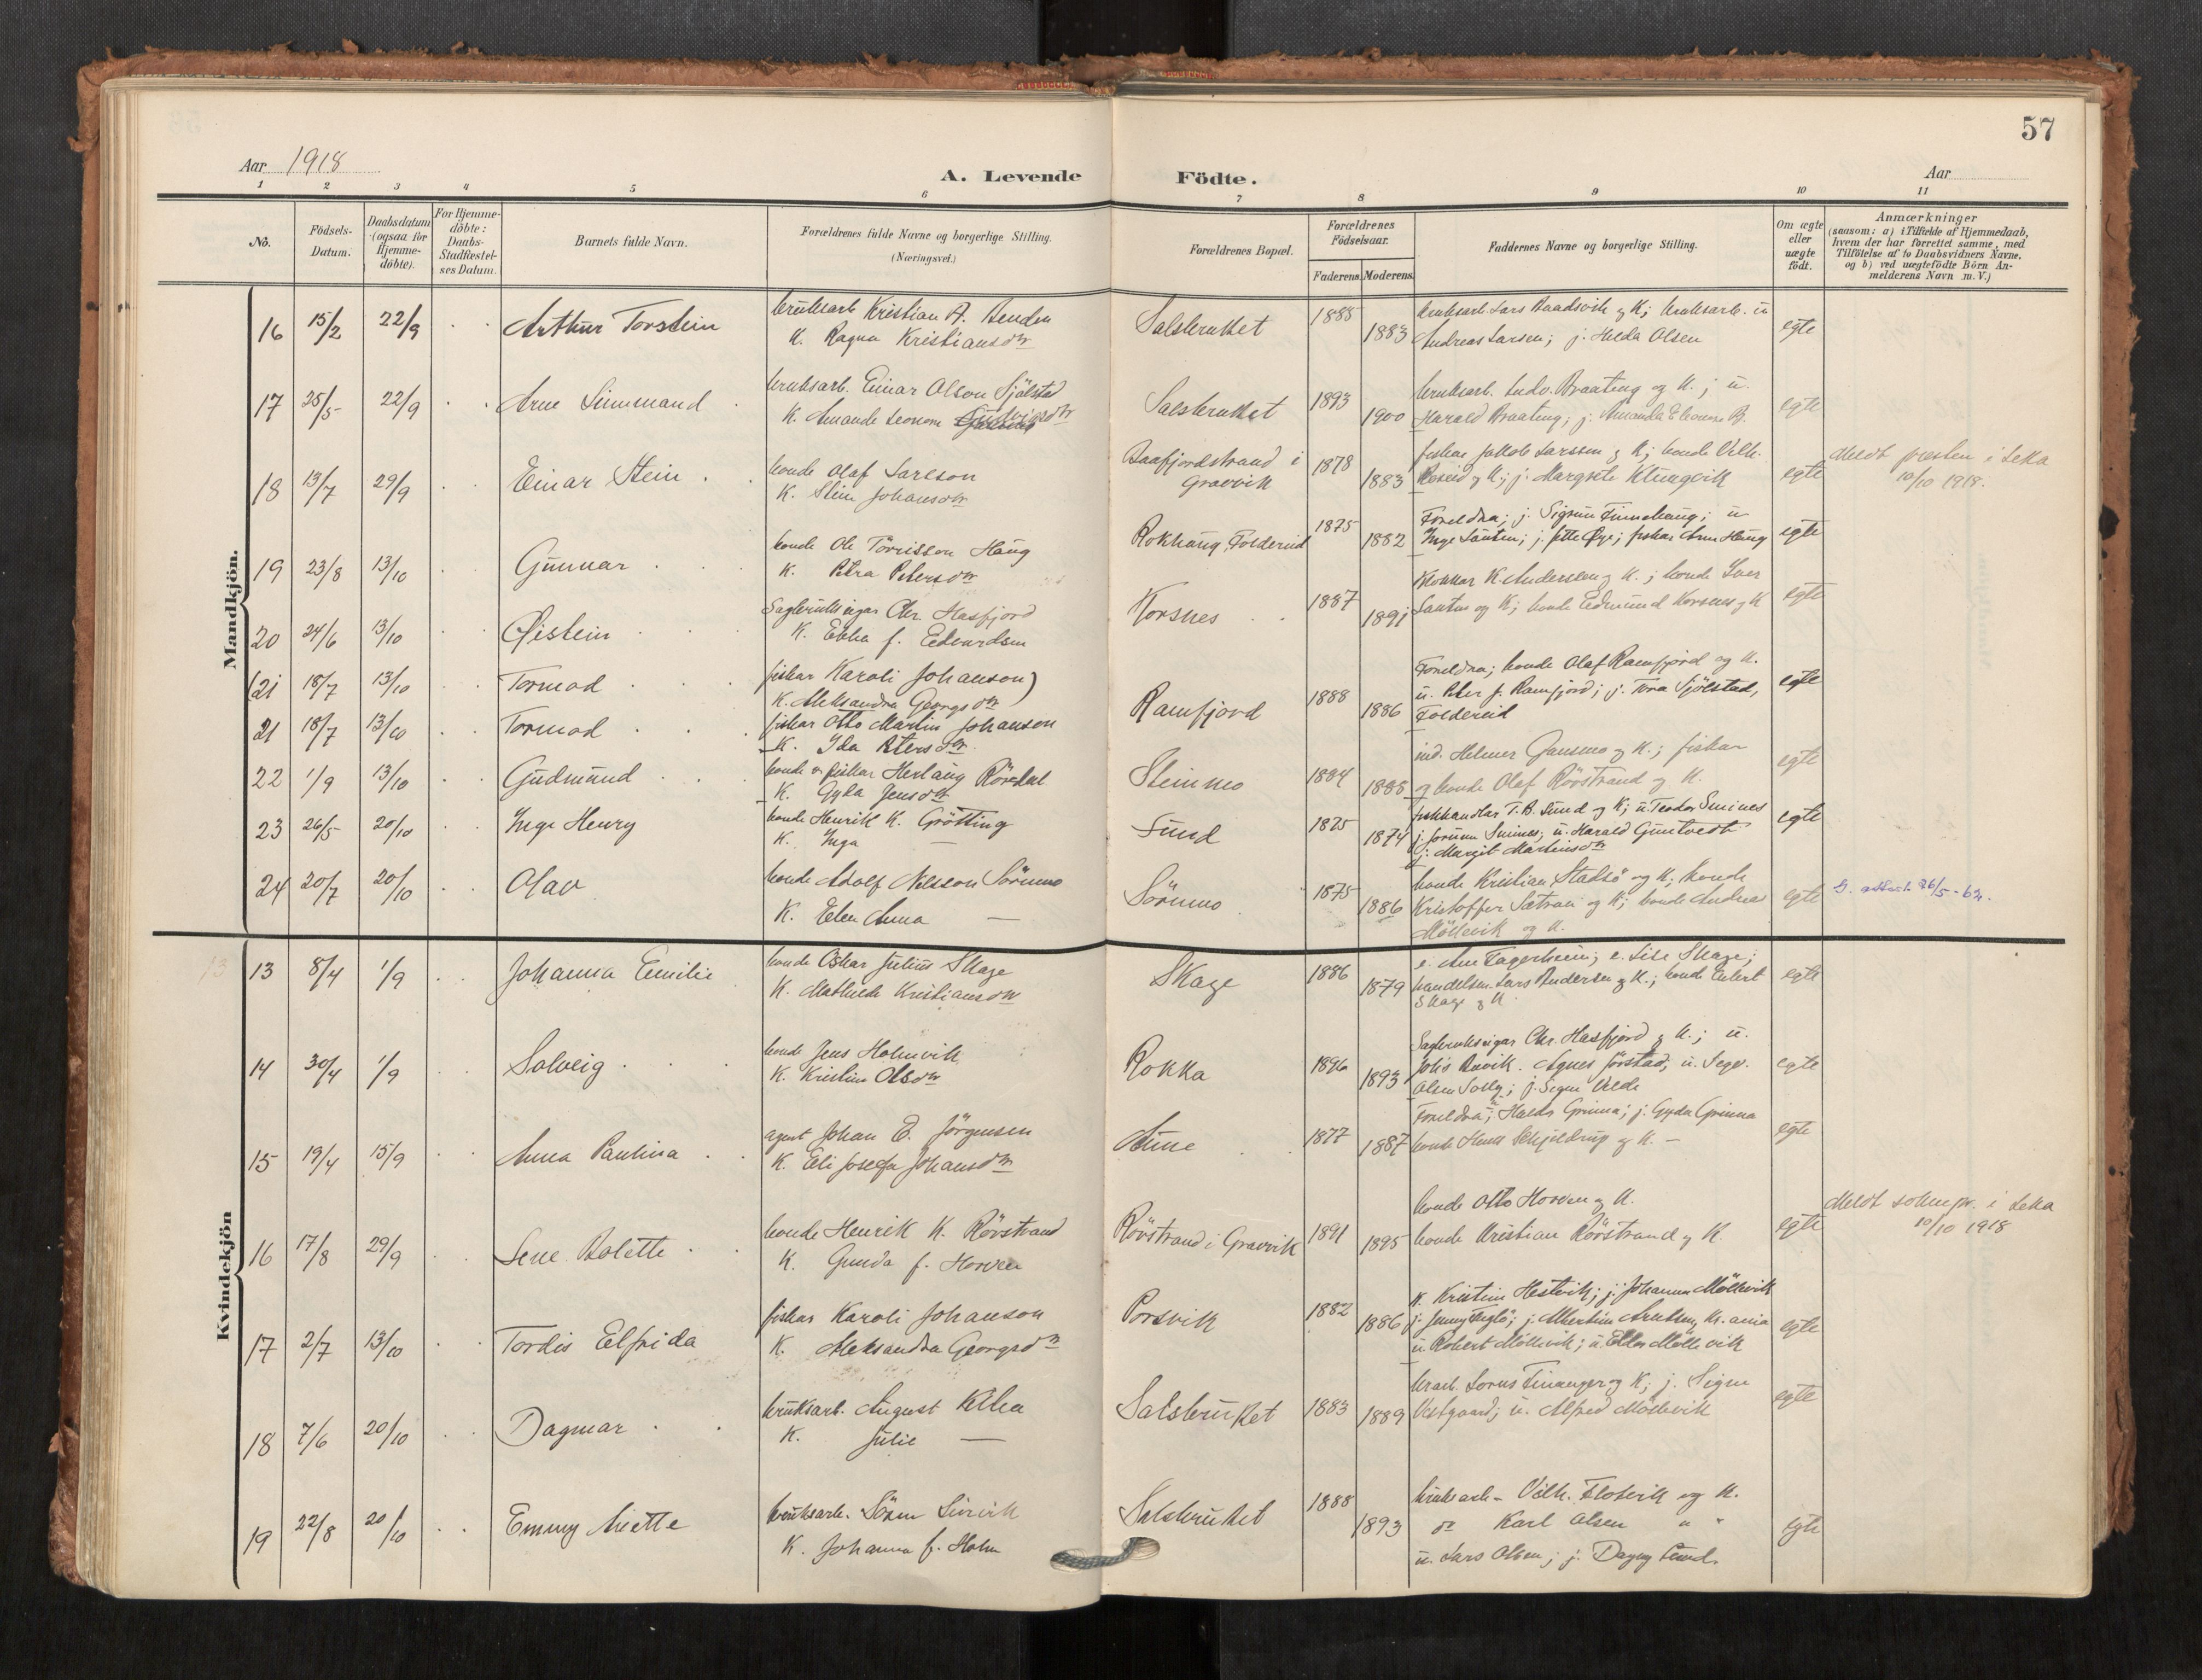 57
Aar 1918
A. Levende Födte.
Aar
1 2 3 4 5 6 7 8 9 10 11
No.
Födsels-
Datum.
Daabsdatum
(ogsaa for
Hjemme-
döbte).
For Hjemme-
döbte:
Daabs-
Stadfæstel-
ses Datum.
Barnets fulde Navn.
Forældrenes fulde Navne og borgerlige Stilling.
(Næringsvei.)
Forældrenes Bopæl.
Forældrenes
Födselsaar.
Faderens. Moderens.
Faddernes Navne og borgerlige Stilling.
Om ægte
eller
uægte
födt.
Anmærkninger
(saasom: a) i Tilfælde af Hjemmedaab,
hvem der har forrettet samme, med
Tilföielse af to Daabsvidners Navne.
og b) ved uægtefödte Börn An-
melderens Navn m. V.)
Mandkjön.
16 15/2 22/9 Arthur Torstein
bruksarb Kristian
K. Ragna Kristiansdtr
Salsbruket 1888 1883
bruksarb. Lars Raadsvik og K; bruksarb.
Andreas Larsen; j. Hulda Olsen
egte
17 25/5 22/9 Arne
bruksarb. Einar Olson Sjölstad
K. Amanda
Salsbruket 1893 1900
bruksarb. Ludv. Braateng og K.; u.
Harald Braateng; j. Amanda Eleonore B.
egte
18 13/7 29/9 Einar Stein
bonde Olaf Larsson
K. Johansdtr
i
Gravvik
1878 1883
fisker Jakob Larssen og K; bonde Vilh.
og K; j. Margrete
egte
Meldt presten i Leka
10/10 1918.
19 23/8 13/10 Gunnar
bonde Ole Törrisson Haug
K. Petra Petersdtr
Rokhaug, Foldereid 1875 1882
Foreldra; j. Sigrun Finnehaug; u
Inge; j. Jette Öye; fisker Haug
egte
20 24/6 13/10 Øistein
Sagbrukseigar Chr. Hasfjord
K. Ebba f. Edvardsen
Korsnes 1887 1891
Klokkar K. Andersen og K.; bonde Iver
og K; bonde Edmund Korsnes og K
egte
(21 18/7 13/10 Tormod
fiskar Karoli Johanson)
K. Aleksandra Georgsdtr
21 18/7 13/10 Tormod
fiskar Otto Martin Johanson
K. Ida Petersdtr
Ramfjord 1888 1886
Foreldra; bonde Olaf Ramfjord og K.
u. Peter J. Ramfjord; j. Tora Sjölstad,
Foldereid
egte
22 1/9 13/10 Gudmund
bonde o. fiskar Herlaug Rördal
K. Gyda Jensdtr
Steinmo 1884 1888
ind. Helmer Gansmo og K.; fiskar
og bonde Olaf Rörstrand og K.
egte
23 26/5 20/10 Inge Henry
bonde Henrik K. Grötting
K. Inga —
Sund 1875 1874
fiskhandlar T. B. Sund og K; u. Teodor Smines
j. Jorunn Smines; u. Harald
j. Margit Martinsdtr
egte
24 20/7 20/10 Olav
bonde Adolf Nilsson Sörumo
K. Elen Anna —
Sörumo 1875 1886
bonde Kristian Stadsö og K; bonde
Kristoffer og K; bonde Andreas
Möllevik og K.
egte
26/5-62.
Kvindekjön
13 13 8/4 1/9 Johanna Emilie
bonde Oskar Julius Skage
K. Mathilde Kristiansdtr
Skage 1886 1879
e. Ane Fagerheim; e. Lise Skage;
handelsm. Lars Andersen og K.; bonde Enlert
Skage og K.
egte
14 30/4 1/9 Solveig
bonde Jens Holmvik
K. Kristine Olsdtr
Rokka 1896 1893
Sagbrukseigar Chr. Hasfjord og K.; u.
Johs . Agnes Jörstad; u. Segv.
Olsen; j. Signe Velde
egte
15 19/4 15/9 Anna Paulina
agent Johan E. Jörgensen
K. Eli Josefa Johansdtr
Aune 1877 1887
Foreldra; Grinna; j. Gyda Grinna
bonde Schjeldrup og K. —
egte
16 17/8 29/9 Lene Bolette
bonde Henrik K. Rörstrand
K. Gunda f. Horven
Rörstrand i Gravvik 1891 1895
bonde Otto Horven og K.
bonde Kristian Rörstrand og K
egte
Meldt sokнepr. i Leka
10/10 1918
17 2/7 13/10 Tordis Elfrida
fiskar Karoli Johanson
K. Aleksandra Georgsdtr
Porsvik 1882 1886
K. Kristine Hestvik; j. Johanna Möllevik
j. Jenny Teglö; j. Albertine, Kr.ania
u. Robert Möllevik; u. Möllevik
egte
18 7/6 20/10 Dagmar
bruksarb. August
K. Julie —
Salsbruket 1883 1889
brarb. Finanger og K; j. Signe
Vestgaard; u. Alfred Möllevik
egte
19 22/8 20/10 Emmy Anette
bruksarb. Sören
K. Johanna f. Holm
Salsbruket 1888 1893
bruksarb – Vilh. Flotvik og K.
do Karl Olsen " "
u. Lars Olsen; j. Dagny Lund.
egte